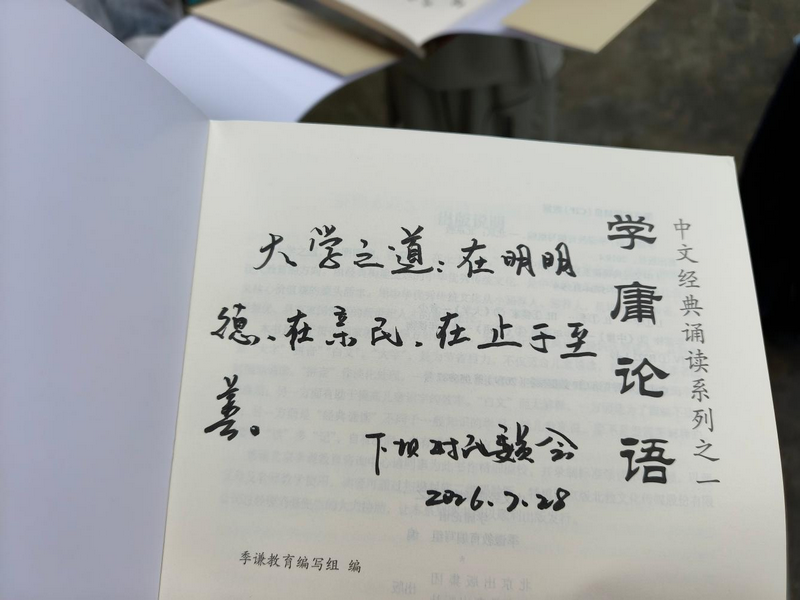 中文经典诵读系列之一
学庸论语
大学之道：在明明
德、在亲民、在止于至
善。
下坝村民委员会
2026.7.28
季谦教育编写组 编